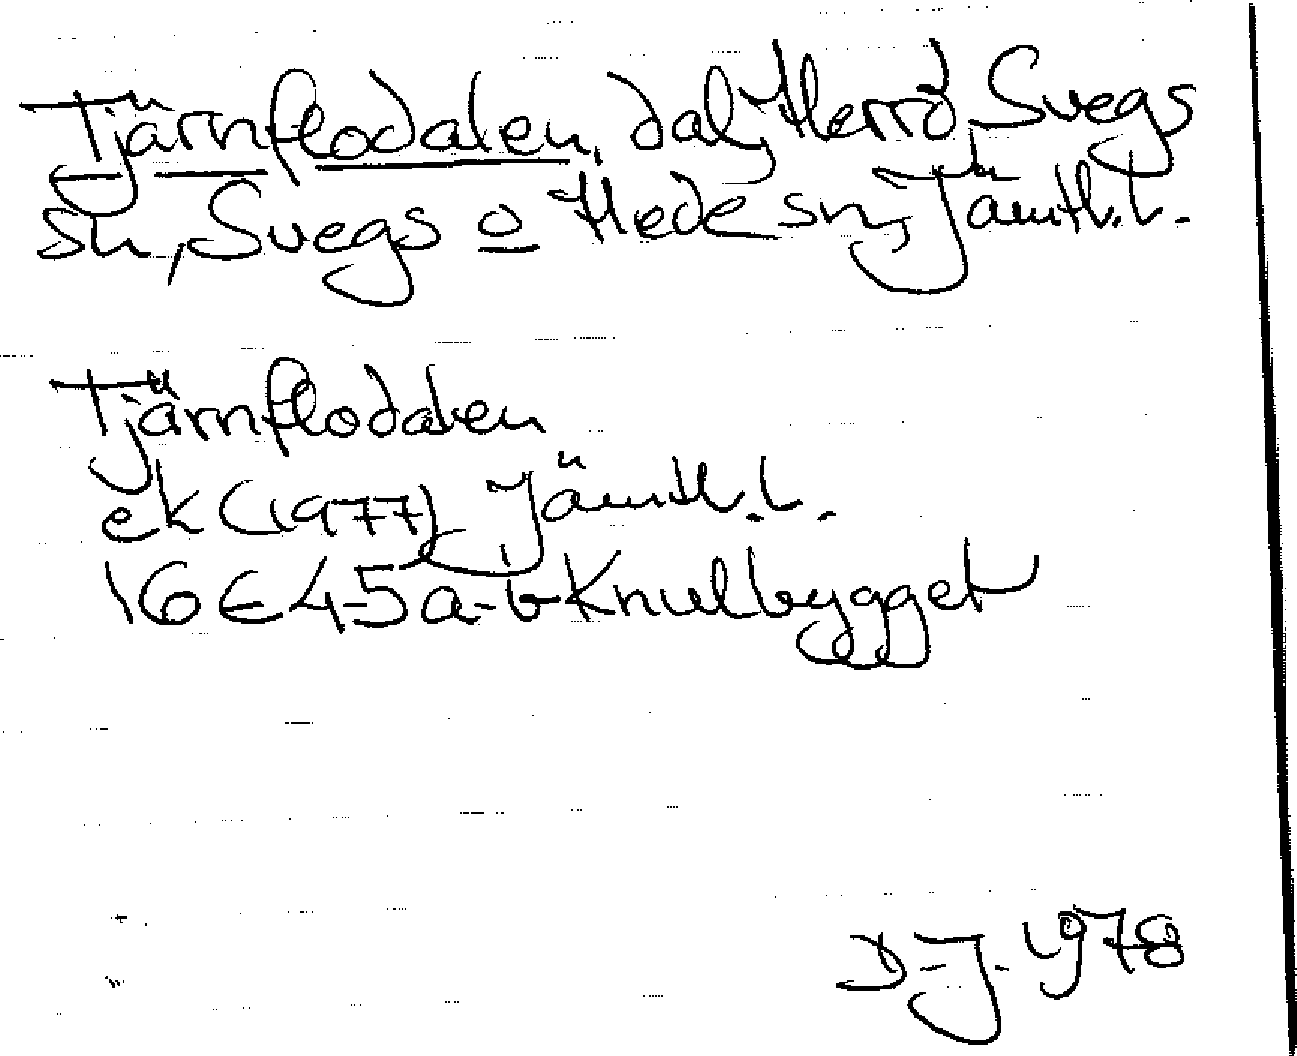 Tjärnflodalen, dal, Herrö Svegs
sn, Svegs o Hede sn, Jämtl.l.
Tjärnflodalen
ek (1977) Jämtl.l.
16 E 4-5 a-b Knulbygget
D.J. 1978